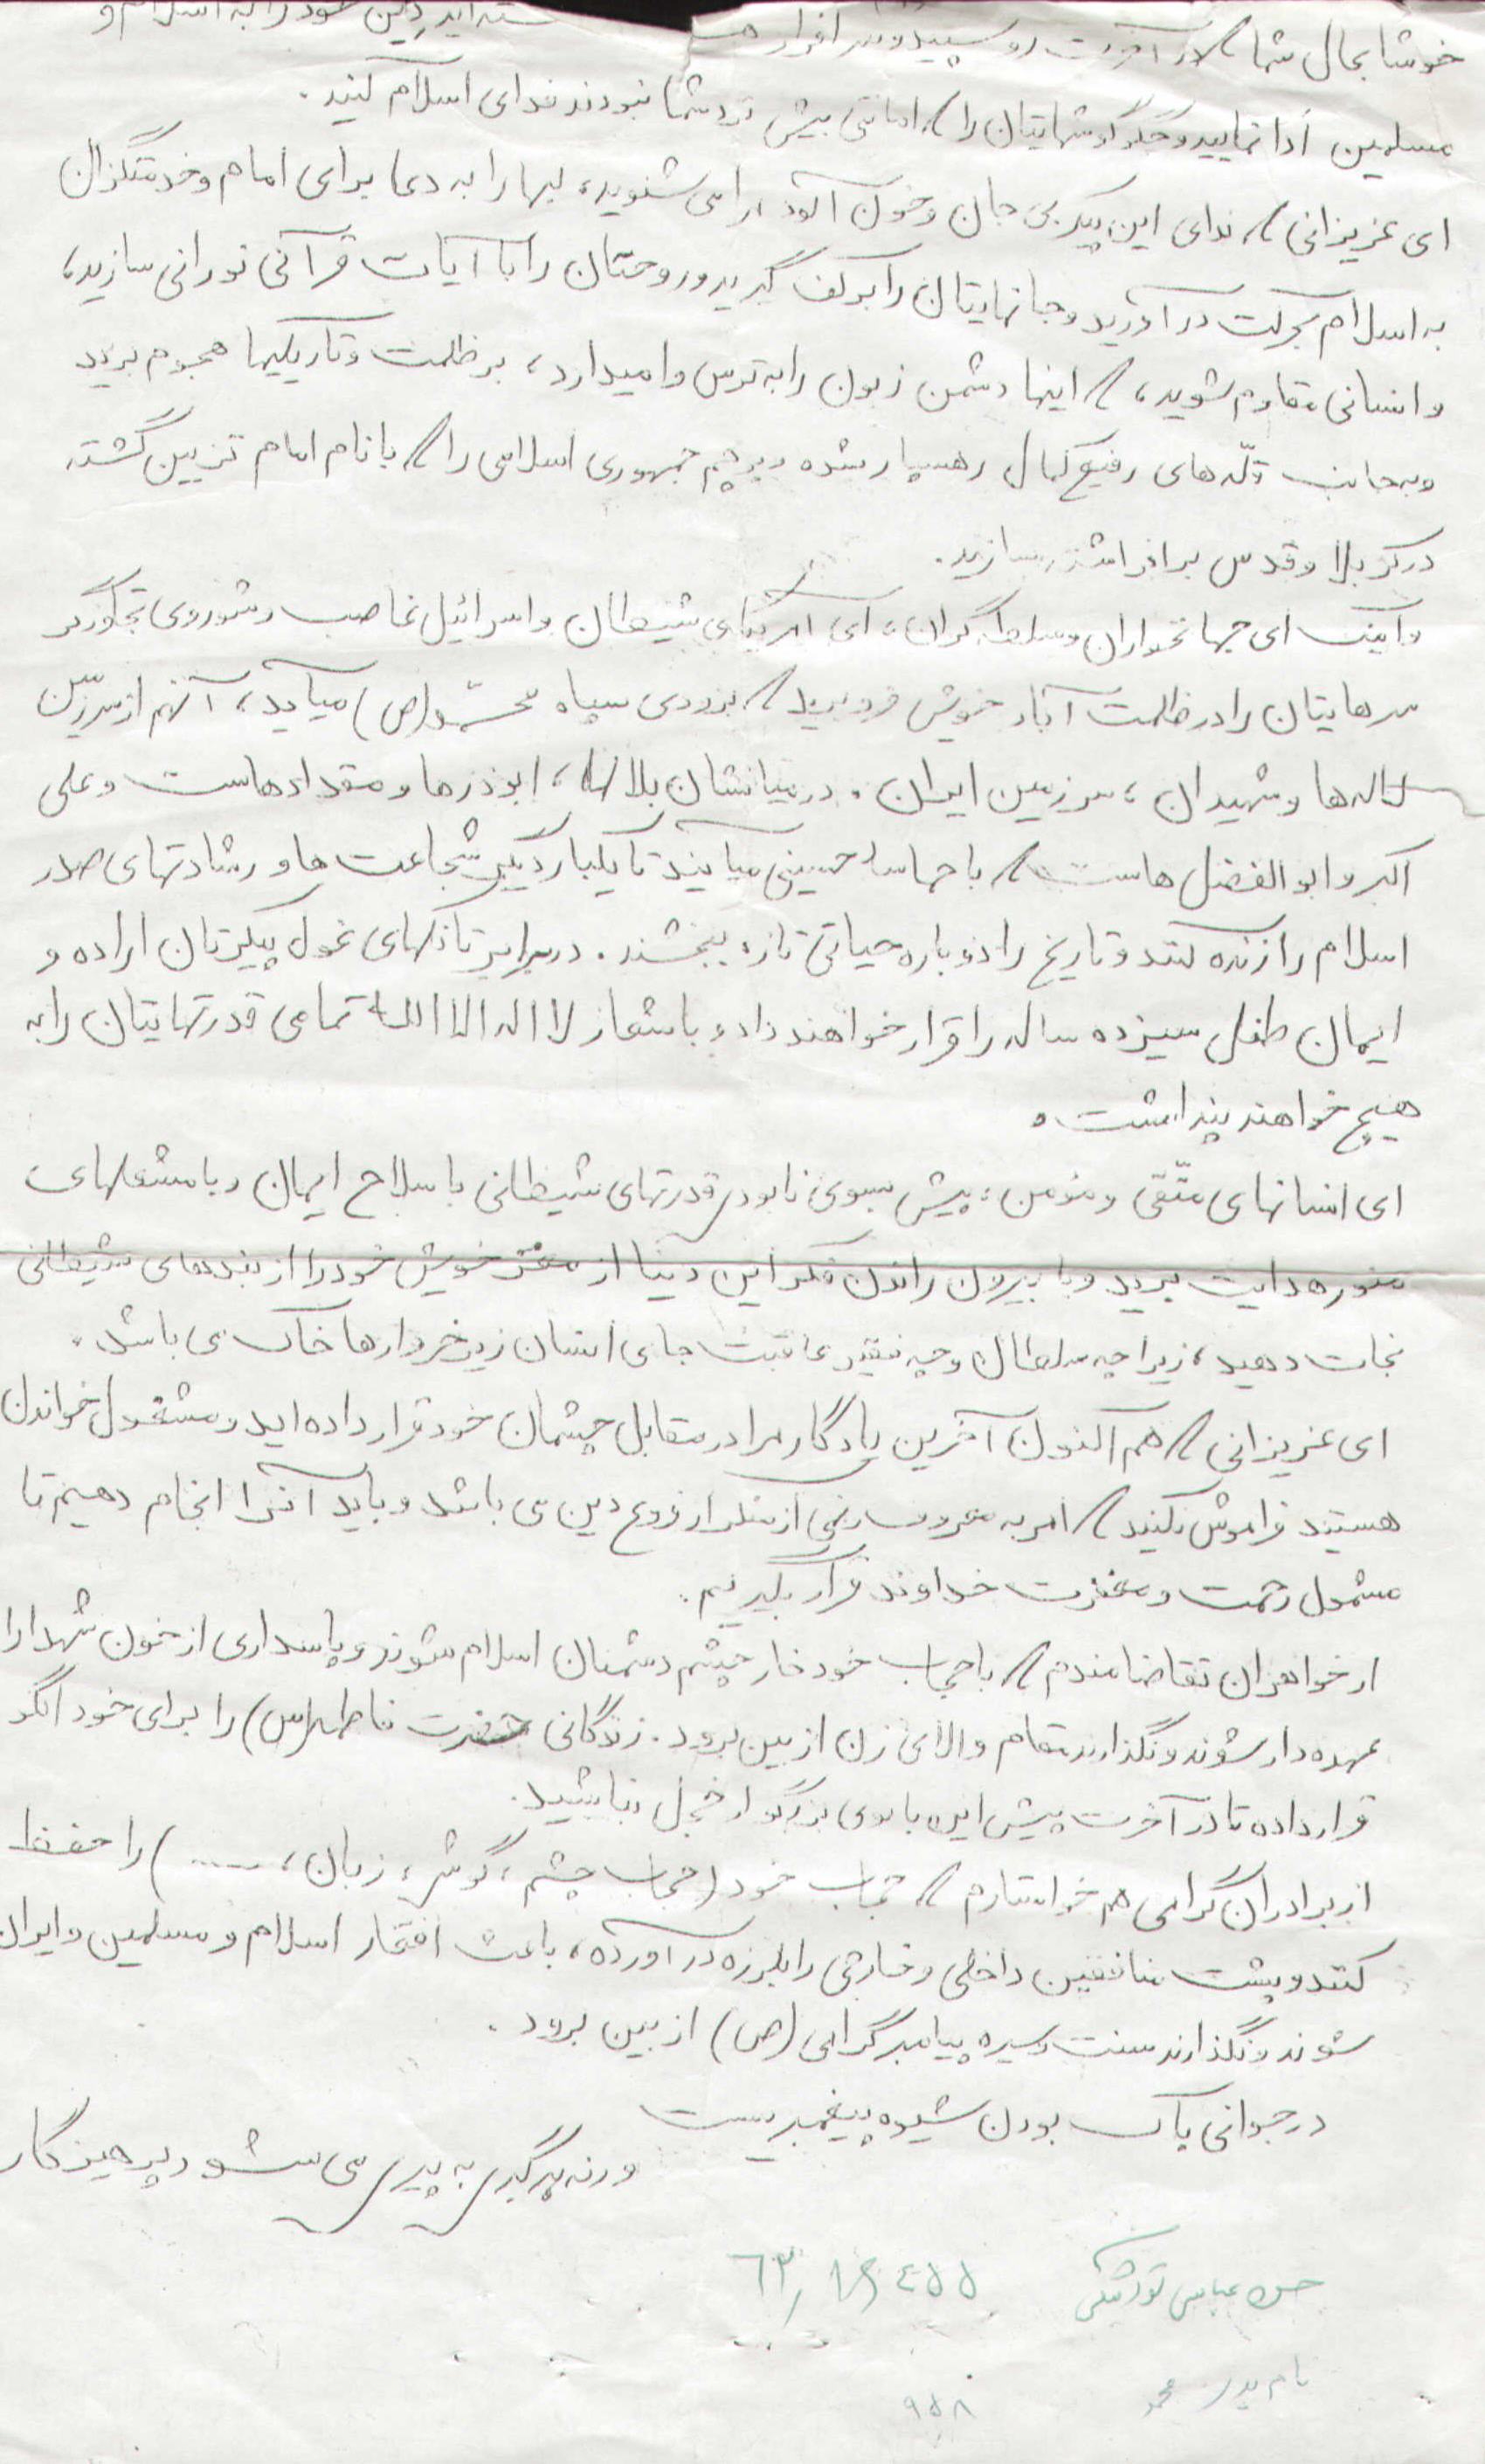 خوشا بحال شما که در آخرت رو سپید و سر افراز هستید دین خود را به اسلام و
مسلمین أدا نمایید و جگر گوشهایتان را که امانتی بیش نزد شما نبودند فدای اسلام کنید.
ای عزیزانی که ندای این پیکر بی جان و خون آلود را می شنوید، لبها را به دعا برای امام و خدمتگزان
به اسلام بحرکت در آورید و جانهایتان را بر کف گیرید و روحتان را با آیات قرآنی نورانی سازید،
و انسانی مقاوم شوید، که اینها دشمن زبون را به ترس وا میدارد، بر ظلمت و تاریکیها هجوم برید
و به جانب قلّه های رفیع کمال رهسپار شده و پرچم جمهوری اسلامی را که با نام امام تزیین گشته
در کربلا و قدس بر افراشته سازید.
و اینک ای جهانخواران و سلطه گران، ای آمریکای شیطان و اسرائیل غاصب و شوروی تجاوزگر
سرهایتان را در ظلمت آباد خویش فرو برید که بزودی سپاه محمّد (ص) میآید، آنهم از سرزمین
لاله ها و شهیدان، سرزمین ایران. در میانشان بلالها، ابوذرها و مقدادهاست و علی
اکبر و ابوالفضل هاست که با حماسه حسینی میآیند تا یکبار دیگر شجاعت ها و رشادتهای صدر
اسلام را زنده کنند و تاریخ را دوباره حیاتی تازه ببخشند. در برابر تانکهای غول پیکرتان اراده و
ایمان طفل سیزده ساله را قرار خواهند داد و با شعار لا اله الا الله تمامی قدرتهایتان را به
هیچ خواهند پنداشت.
ای انسانهای متّقی و مؤمن، پیش بسوی نابودی قدرتهای شیطانی با سلاح ایمان و با مشعلهای
منور هدایت برید و با بیرون راندن فکر این دنیا از مغز خویش خود را از بندهای شیطانی
نجات دهید، زیرا چه سلطان و چه فقیر عاقبت جای انسان زیر خروارها خاک می باشد.
ای عزیزانی که هم اکنون آخرین یادگار مرا در مقابل چشمان خود قرار داده اید و مشغول خواندن
هستید فراموش نکنید که امر به معروف و نهی از منکر از فروع دین می باشد و باید آنرا انجام دهیم تا
مشمول رحمت و مغفرت خداوند قرار بگیریم.
از خواهران تقاضامندم که با حجاب خود خار چشم دشمنان اسلام شوند و پاسداری از خون شهدا را
عهده دار شوند و نگذارند مقام والای زن از بین برود. زندگانی حضرت فاطمه (س) را برای خود الگو
قرار داده تا در آخرت پیش این بانوی بزرگوار خجل نباشید.
از برادران گرامی هم خواستارم که حجاب خود (حجاب چشم، گوش، زبان، .....) را حفظ
کنند و پشت منافقین داخلی و خارجی را بلرزه در آورده، باعث افتخار اسلام و مسلمین و ایران
شوند و نگذارند سنت و سیره پیامبر گرامی (ص) از بین برود.
در جوانی پاک بودن شیوه پیغمبریست
ورنه هر گبری به پیری می شود پرهیزگار
حسن عباس
نام پدر محمد
۹۵۸